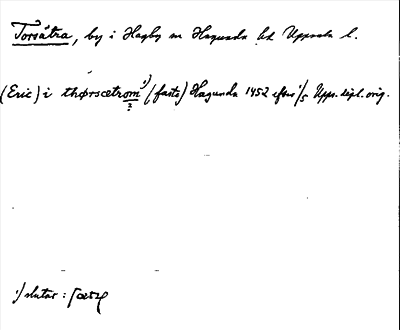 Torsåtra, by i Hagby sn Hagunda hd Uppsala l.
(Eric) i thørsætrom 1) (fasta) Hagunda 1452 efter 1/5 Upps. dipl. orig.
?
1) slutar :